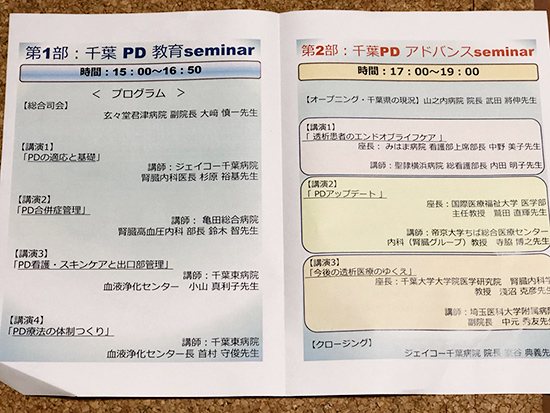 第1部：千葉 PD 教育seminar
時間：15：00～16：50
＜ プログラム ＞
【総合司会】
玄々堂君津病院 副院長 大﨑 慎一先生
【講演1】
「PDの適応と基礎」
講師：ジェイコー千葉病院
腎臓内科医長 杉原 裕基先生
【講演2】
「PD合併症管理」
講師： 亀田総合病院
腎臓高血圧内科 部長 鈴木 智先生
【講演3】
「PD看護・スキンケアと出口部管理」
講師：千葉東病院
血液浄化センター 小山 真利子先生
【講演4】
「PD療法の体制づくり」
講師：千葉東病院
血液浄化センター長 首村 守俊先生
第2部：千葉PD アドバンスseminar
時間：17：00～19：00
【オープニング・千葉県の現況】山之内病院 院長 武田 將伸先生
【講演1】
「 透析患者のエンドオブライフケア 」
座長： みはま病院 看護部上席部長 中野 美子先生
講師：聖隷横浜病院 総看護部長 内田 明子先生
【講演2】
「 PDアップデート 」
座長：国際医療福祉大学 医学部
主任教授 鷲田 直輝先生
講師：帝京大学ちば総合医療センター
内科（腎臓グループ）教授 寺脇 博之先生
【講演3】
「今後の透析医療のゆくえ」
座長：千葉大学大学院医学研究院 腎臓内科学
教授 淺沼 克彦先生
講師：埼玉医科大学附属病院
副院長 中元 秀友先生
【クロージング】
ジェイコー千葉病院 院長 室谷 典義先生